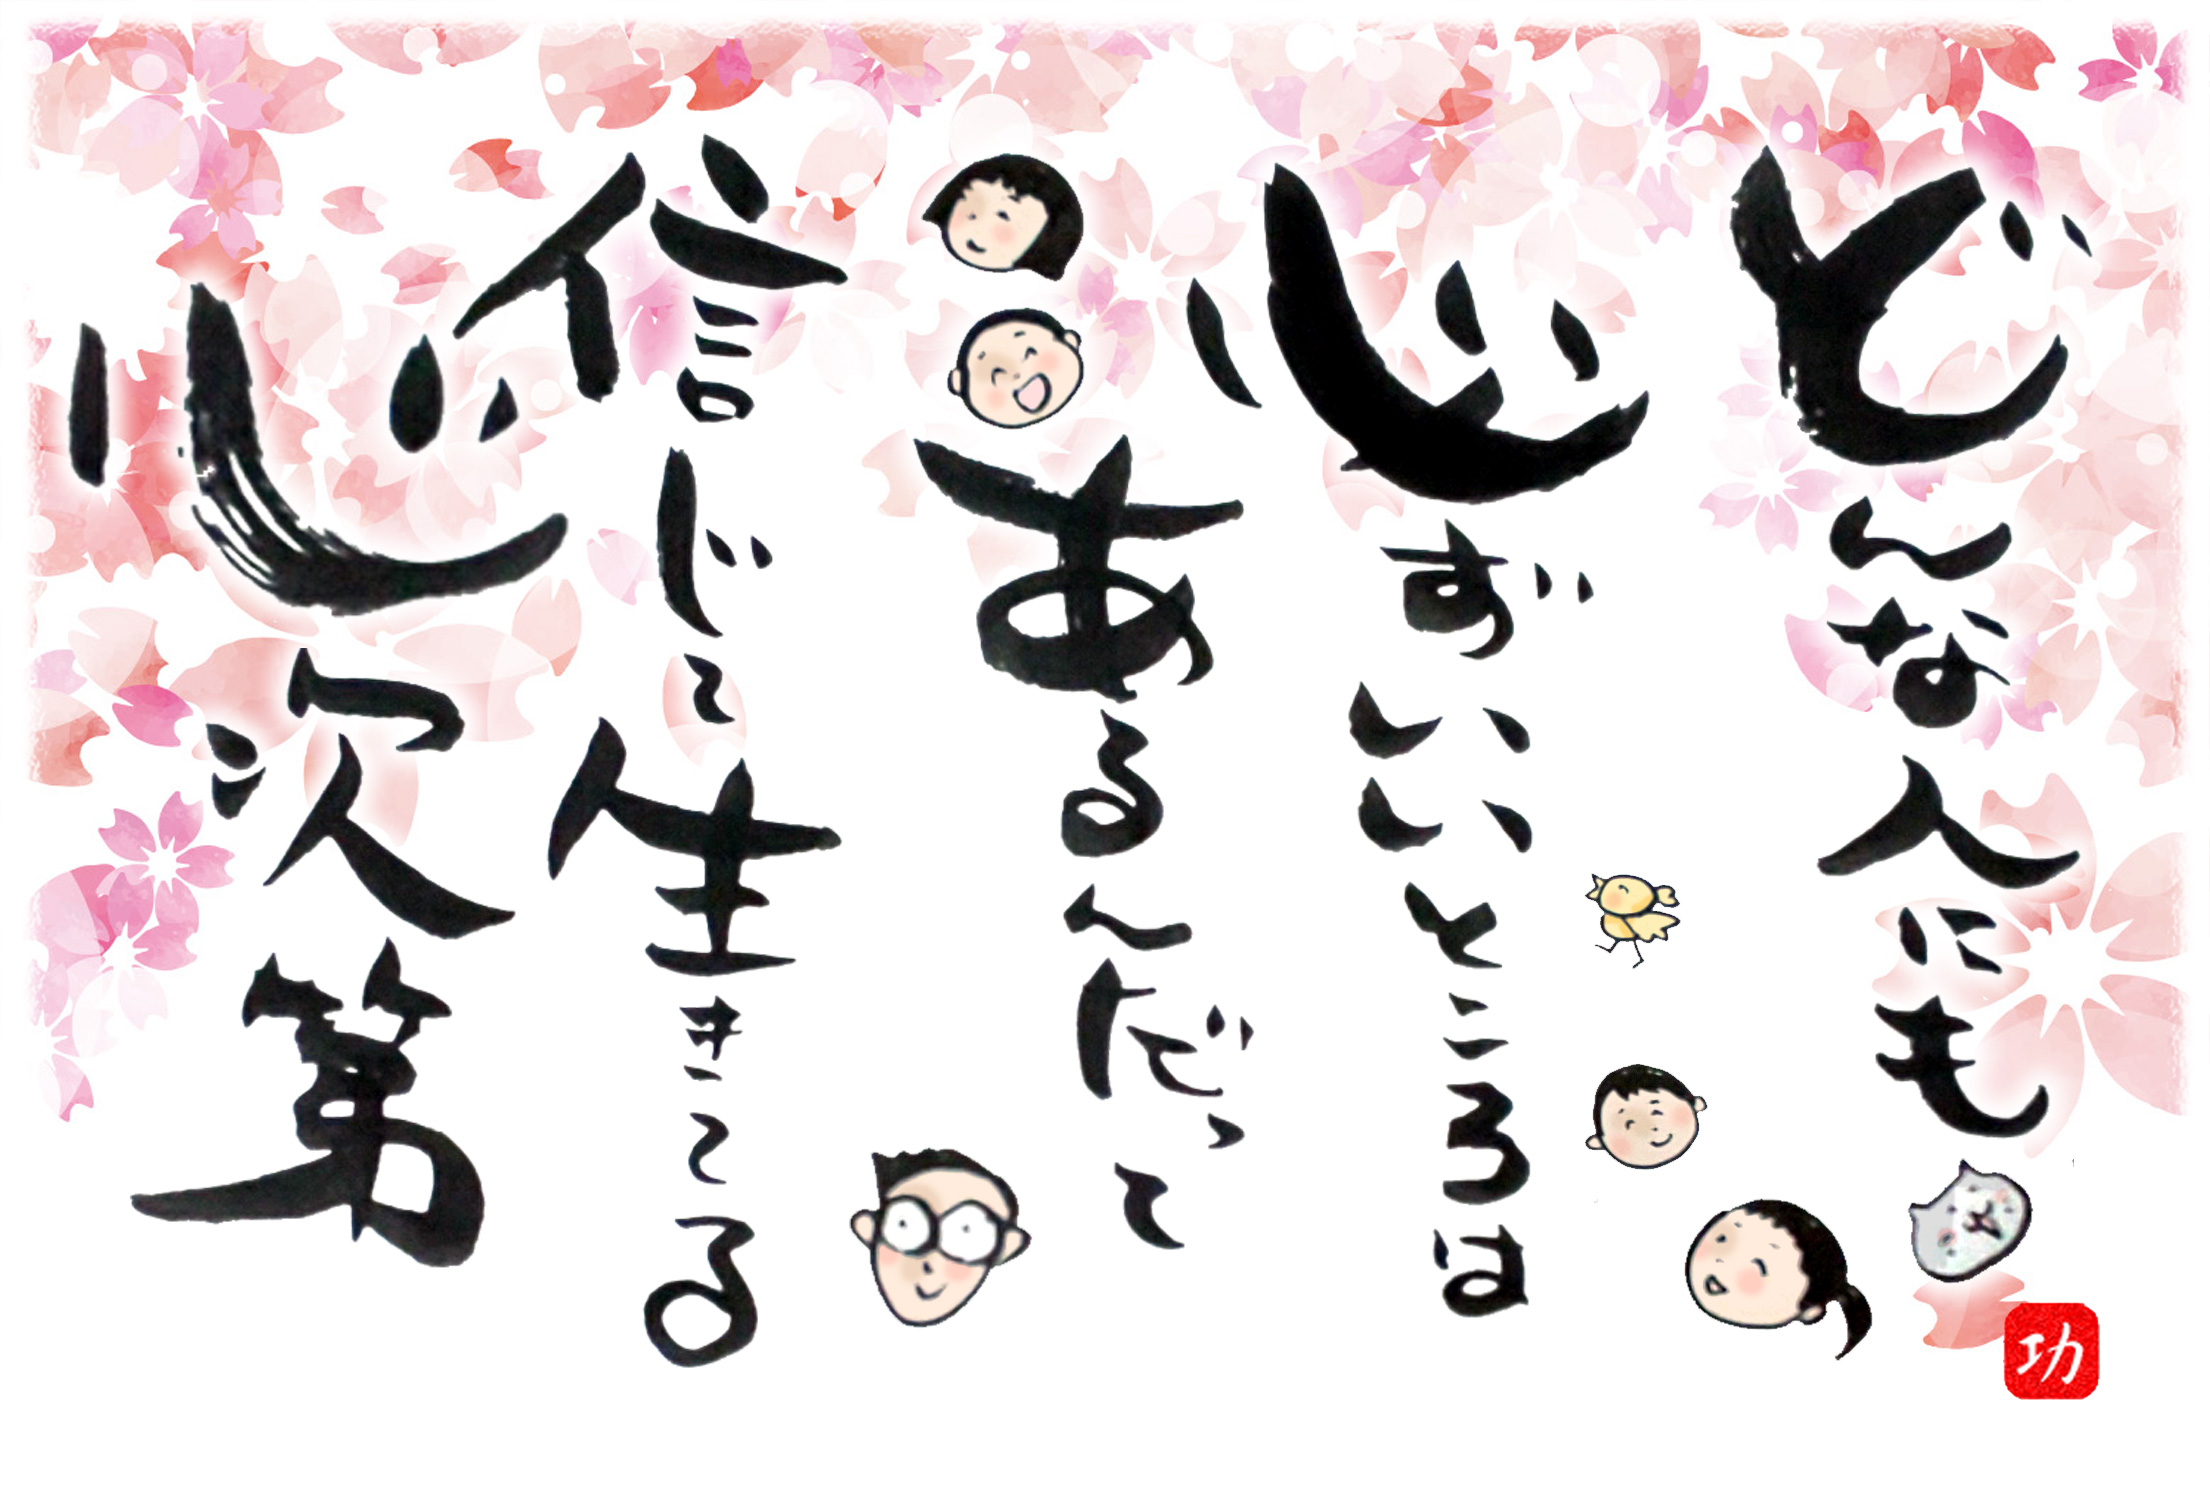 どんな人にも
必ずいいところは
あるんだって
信じて生きてる
心次第
功